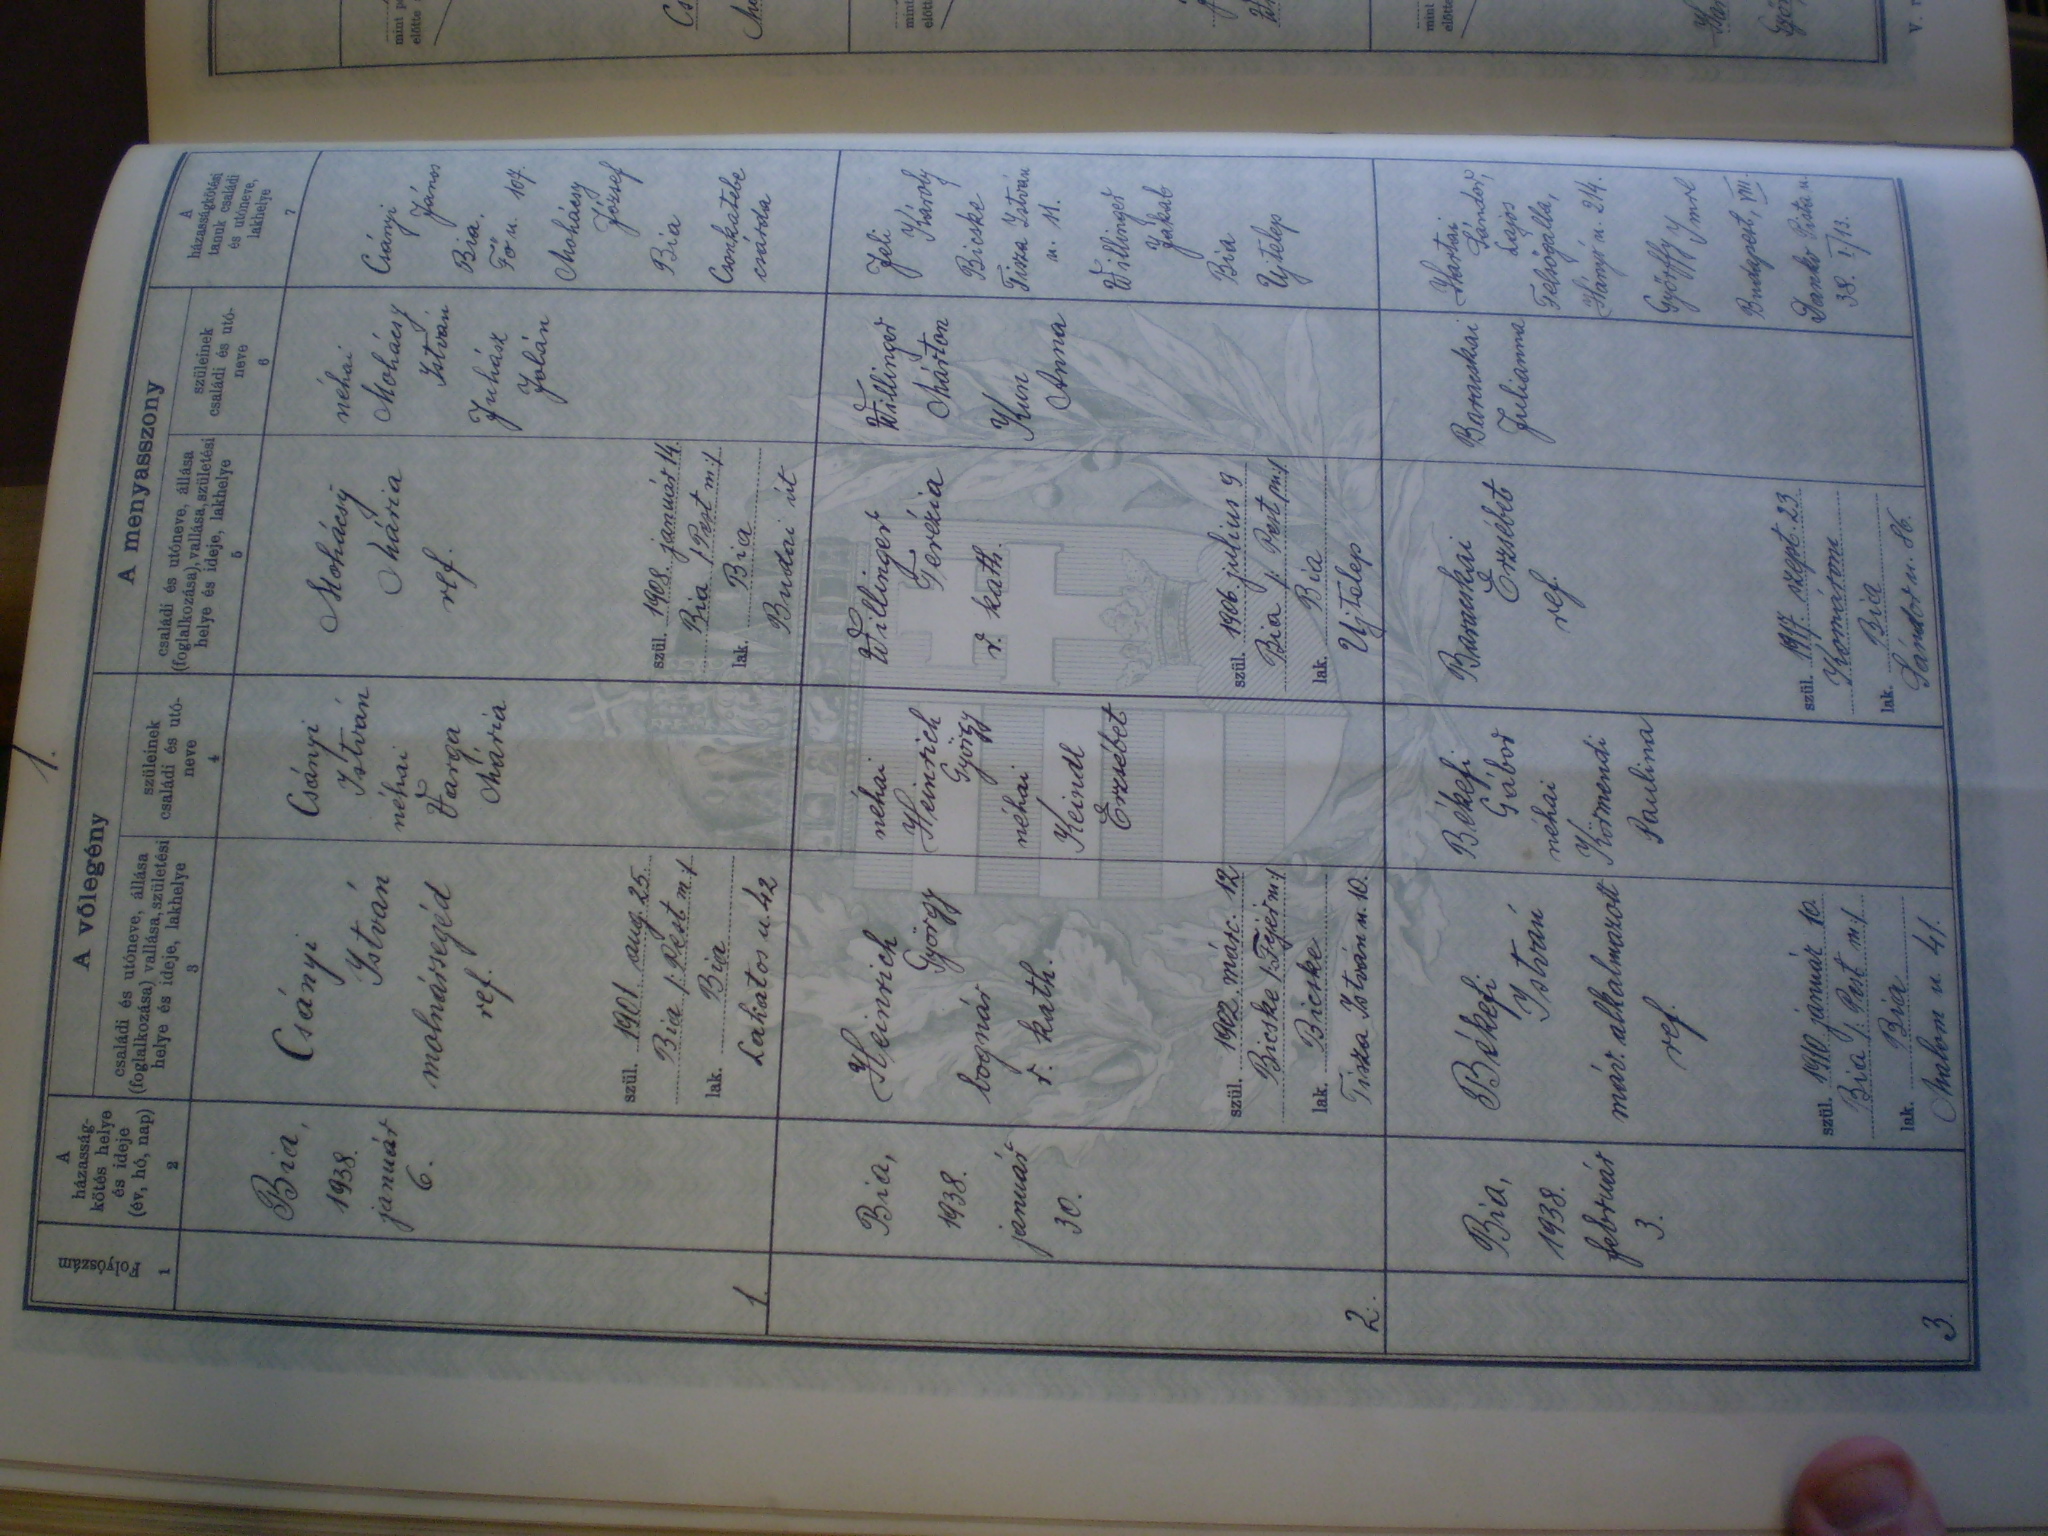 1.
A
házasság-
kötés helye
és ideje
(év, hó, nap)
A vőlegény
A menyasszony
A
házasságkötési
tanuk családi
és utóneve,
lakhelye
Folyószám
családi és utóneve, állása
(foglalkozása) vallása, születési
helye és ideje, lakhelye
szüleinek
családi és utó-
neve
családi és utóneve, állása
(foglalkozása), vallása, születési
helye és ideje, lakhelye
szüleinek
családi és utó-
neve
1
2
3
4
5
6
7
1.
Bia,
1938.
január
6.
Csányi
István
molnársegéd
ref.
szül. 1901. aug. 25.
Bia /: Pest m :/
lak. Bia
Lakatos u. 42
Csányi
István
néhai
Varga
Mária
Mohácsy
Mária
ref.
szül. 1908. január 14.
Bia /: Pest m :/
lak. Bia
Budai út
néhai
Mohácsy
István
Juhász
Zolán
Csányi
János
Bia,
Fő u. 107.
Mohácsy
József
Bia
Csonkatebe
csárda
2.
Bia,
1938.
január
30.
Heinrich
György
bognár
r. kath.
szül. 1902. márc. 12
Bicske /: Fejér m :/
lak. Bicske
Tisza István u. 10.
néhai
Heinrich
György
néhai
Keindl
Erzsébet
Willinger
Terézia
r. kath.
szül. 1906. julius 9
Bia /: Pest m :/
lak. Bia
Ujtelep
Willinger
Márton
Kun
Anna
Jeli
Károly
Bicske
Tisza István
u. 11.
Willinger
Jakab
Bia
Ujtelep
3.
Bia,
1938.
február
3.
Békefi
István
máv. alkalmazott
ref.
szül. 1910 január 10.
Bia /: Pest m :/
lak. Bia
Malom u. 41.
Békefi
Gábor
néhai
Körmendi
Paulina
Baracskai
Erzsébet
ref.
szül. 1917 szept. 23
Komárom
lak. Bia
Sándor u. 86.
Baracskai
Julianna
Sándor,
Lajos
Felsőgalla,
u. 214.
Györffy Imre
Budapest, VIII.
Dankó Pista u.
38. I/13.